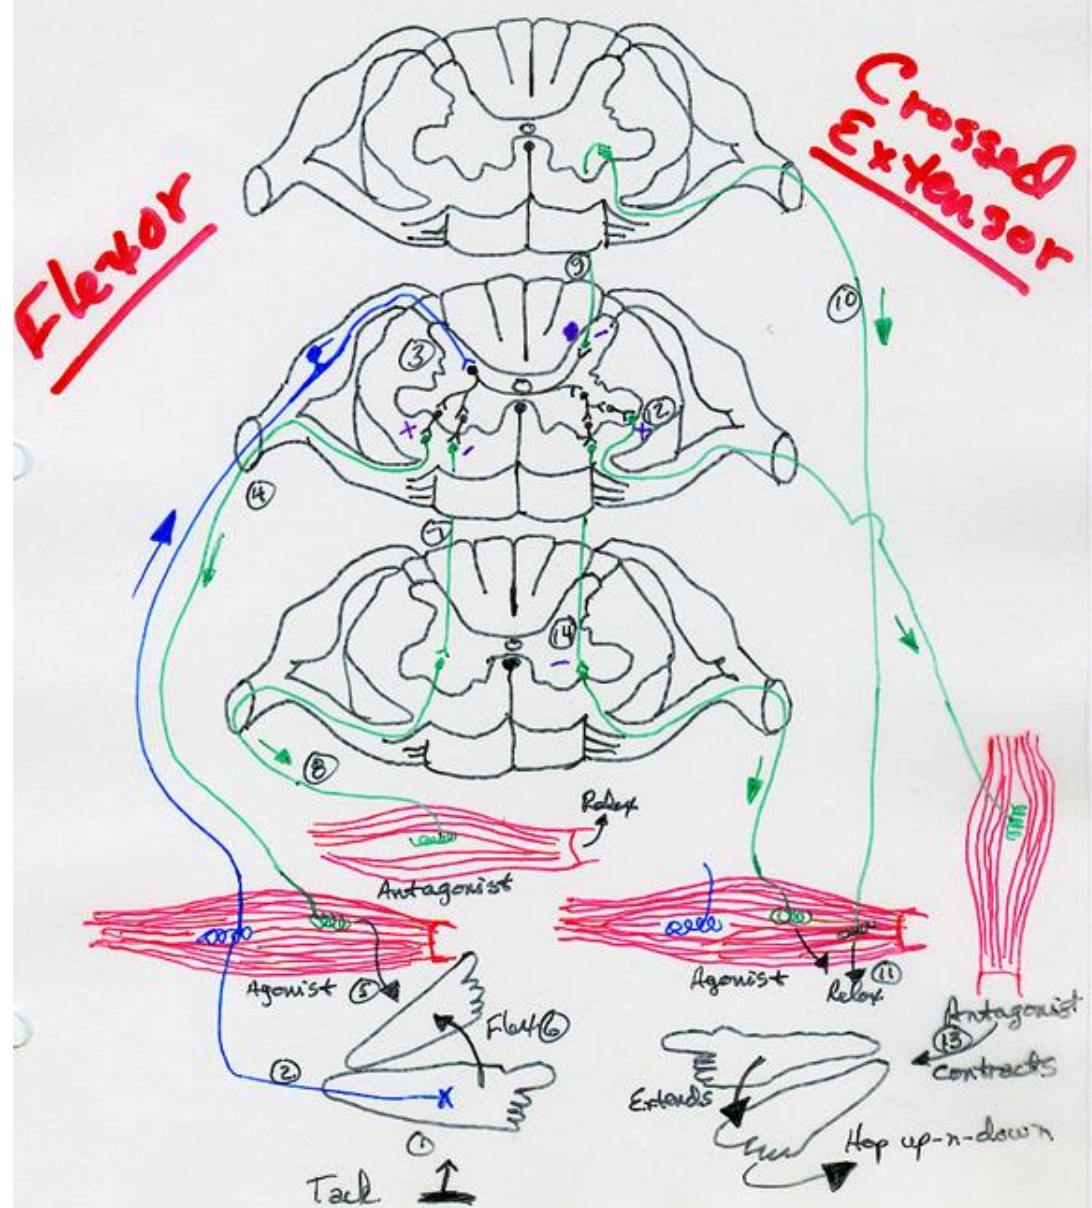 Flexor
Crossed
Extensor
9
10
3
+
-
-
12
+
4
7
14
-
8
Relax
Antagonist
Agonist
5
Flex 6
Agonist
Relax
11
Antagonist
13
contracts
2
x
1
Tack
Extends
Hop up-n-down